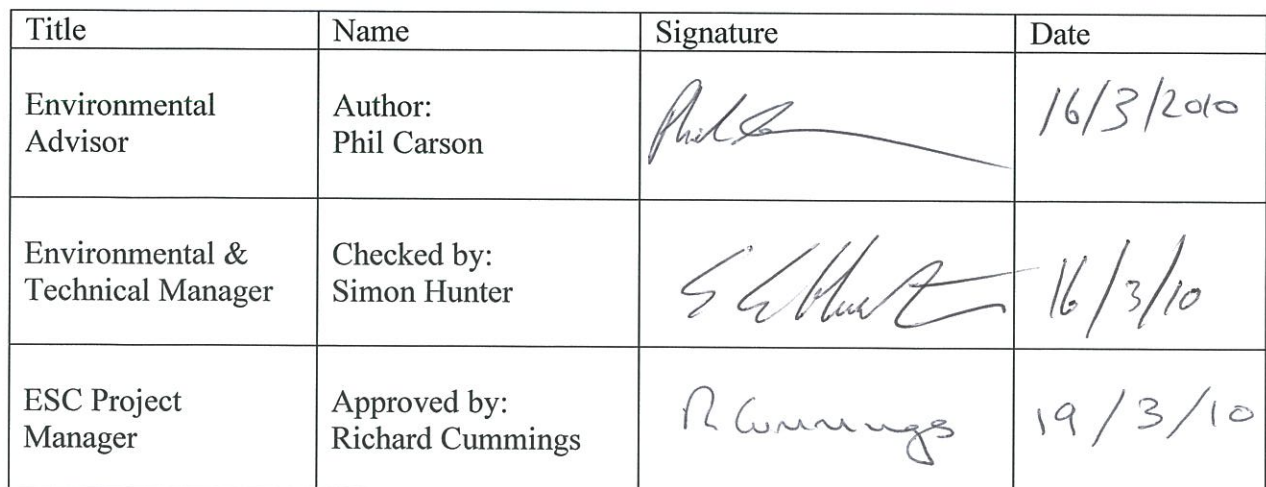 Title Name Signature Date
Environmental
Advisor
Author:
Phil Carson
16/3/2010
Environmental &
Technical Manager
Checked by:
Simon Hunter
16/3/10
ESC Project
Manager
Approved by:
Richard Cummings
R Cummings
19/3/10